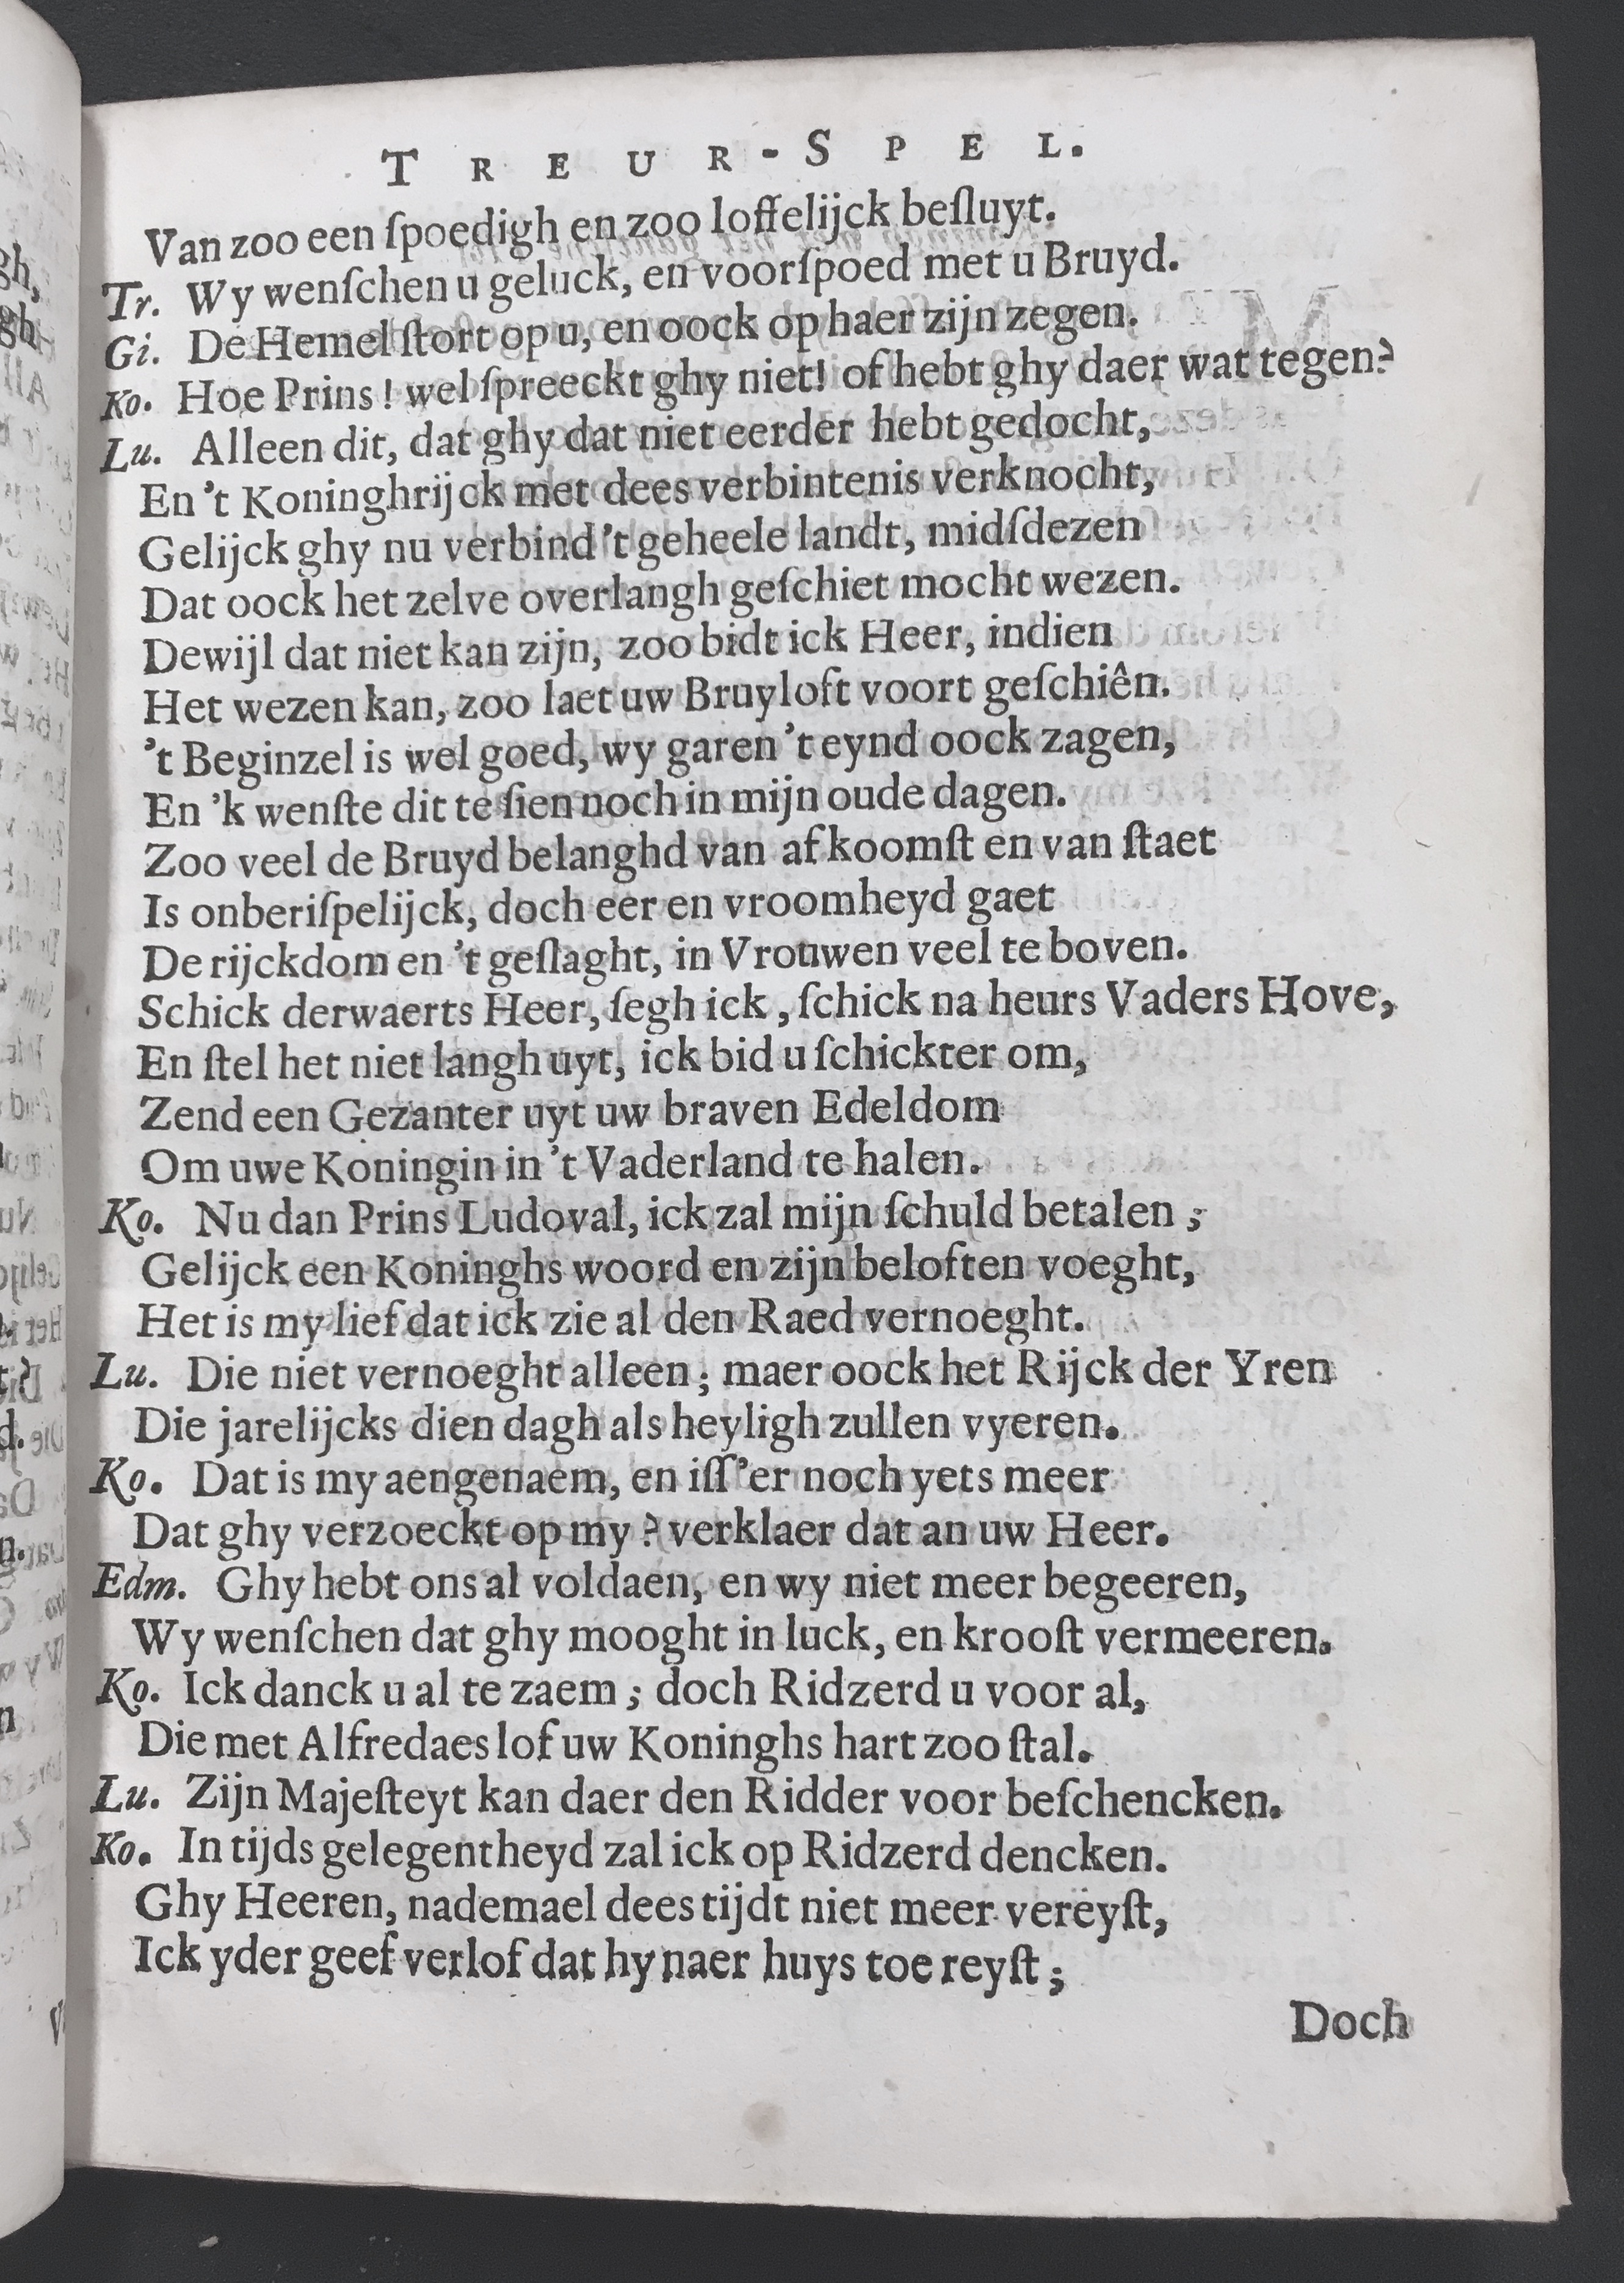 TREUR-SPEL.
Van zoo een ſpoedigh en zoo loffelijck beſluyt.
Tr. Wy wenſchen u geluck, en voorſpoed met u Bruyd.
Gi. De Hemel ſtort op u, en oock op haer zijn zegen.
Ko. Hoe Prins! wel ſpreeckt ghy niet! of hebt ghy daer wat tegen?
Lu. Alleen dit, dat ghy dat niet eerder hebt gedocht,
En 't Koninghrijck met dees verbintenis verknocht,
Gelijck ghy nu verbind 't geheele landt, midſdezen
Dat oock het zelve overlangh geſchiet mocht wezen.
Dewijl dat niet kan zijn, zoo bidt ick Heer, indien
Het wezen kan, zoo laet uw Bruyloft voort geſchiên.
't Beginzel is wel goed, wy garen 't eynd oock zagen,
En 'k wenſte dit te ſien noch in mijn oude dagen.
Zoo veel de Bruyd belanghd van afkoomſt en van ſtaet
Is onberiſpelijck, doch eer en vroomheyd gaet
De rijckdom en 't geſlaght, in Vrouwen veel te boven.
Schick derwaerts Heer, ſegh ick, ſchick na heurs Vaders Hove,
En ſtel het niet langh uyt, ick bid u ſchickter om,
Zend een Gezanter uyt uw braven Edeldom
Om uwe Koningin in 't Vaderland te halen.
Ko. Nu dan Prins Ludoval, ick zal mijn ſchuld betalen;
Gelijck een Koninghs woord en zijn beloften voeght,
Het is my lief dat ick zie al den Raed vernoeght.
Lu. Die niet vernoeght alleen; maer oock het Rijck der Yren
Die jarelijcks dien dagh als heyligh zullen vyeren.
Ko. Dat is my aengenaem, en iſſ'er noch yets meer
Dat ghy verzoeckt op my? verklaer dat an uw Heer.
Edm. Ghy hebt ons al voldaen, en wy niet meer begeeren,
Wy wenſchen dat ghy mooght in luck, en krooſt vermeeren.
Ko. Ick danck u al te zaem; doch Ridzerd u voor al,
Die met Alfredaes lof uw Koninghs hart zoo ſtal.
Lu. Zijn Majeſteyt kan daer den Ridder voor beſchencken.
Ko. In tijds gelegentheyd zal ick op Ridzerd dencken.
Ghy Heeren, nademael dees tijdt niet meer vereyſt,
Ick yder geef verlof dat hy naer huys toe reyſt;
Doch